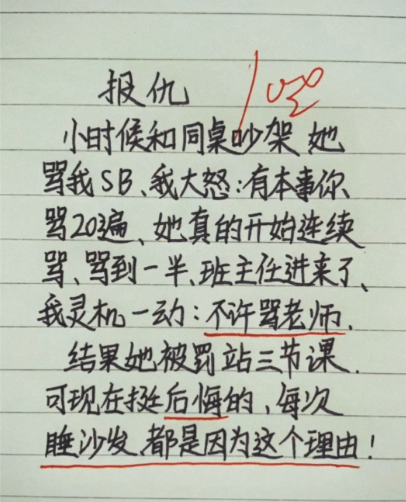 报仇 100
小时候和同桌吵架 她
骂我SB、我大怒:有本事你
骂20遍、她真的开始连续
骂、骂到一半、班主任进来了、
我灵机一动:不许骂老师.
结果她被罚站三节课.
可现在挺后悔的,每次
睡沙发、都是因为这个理由!